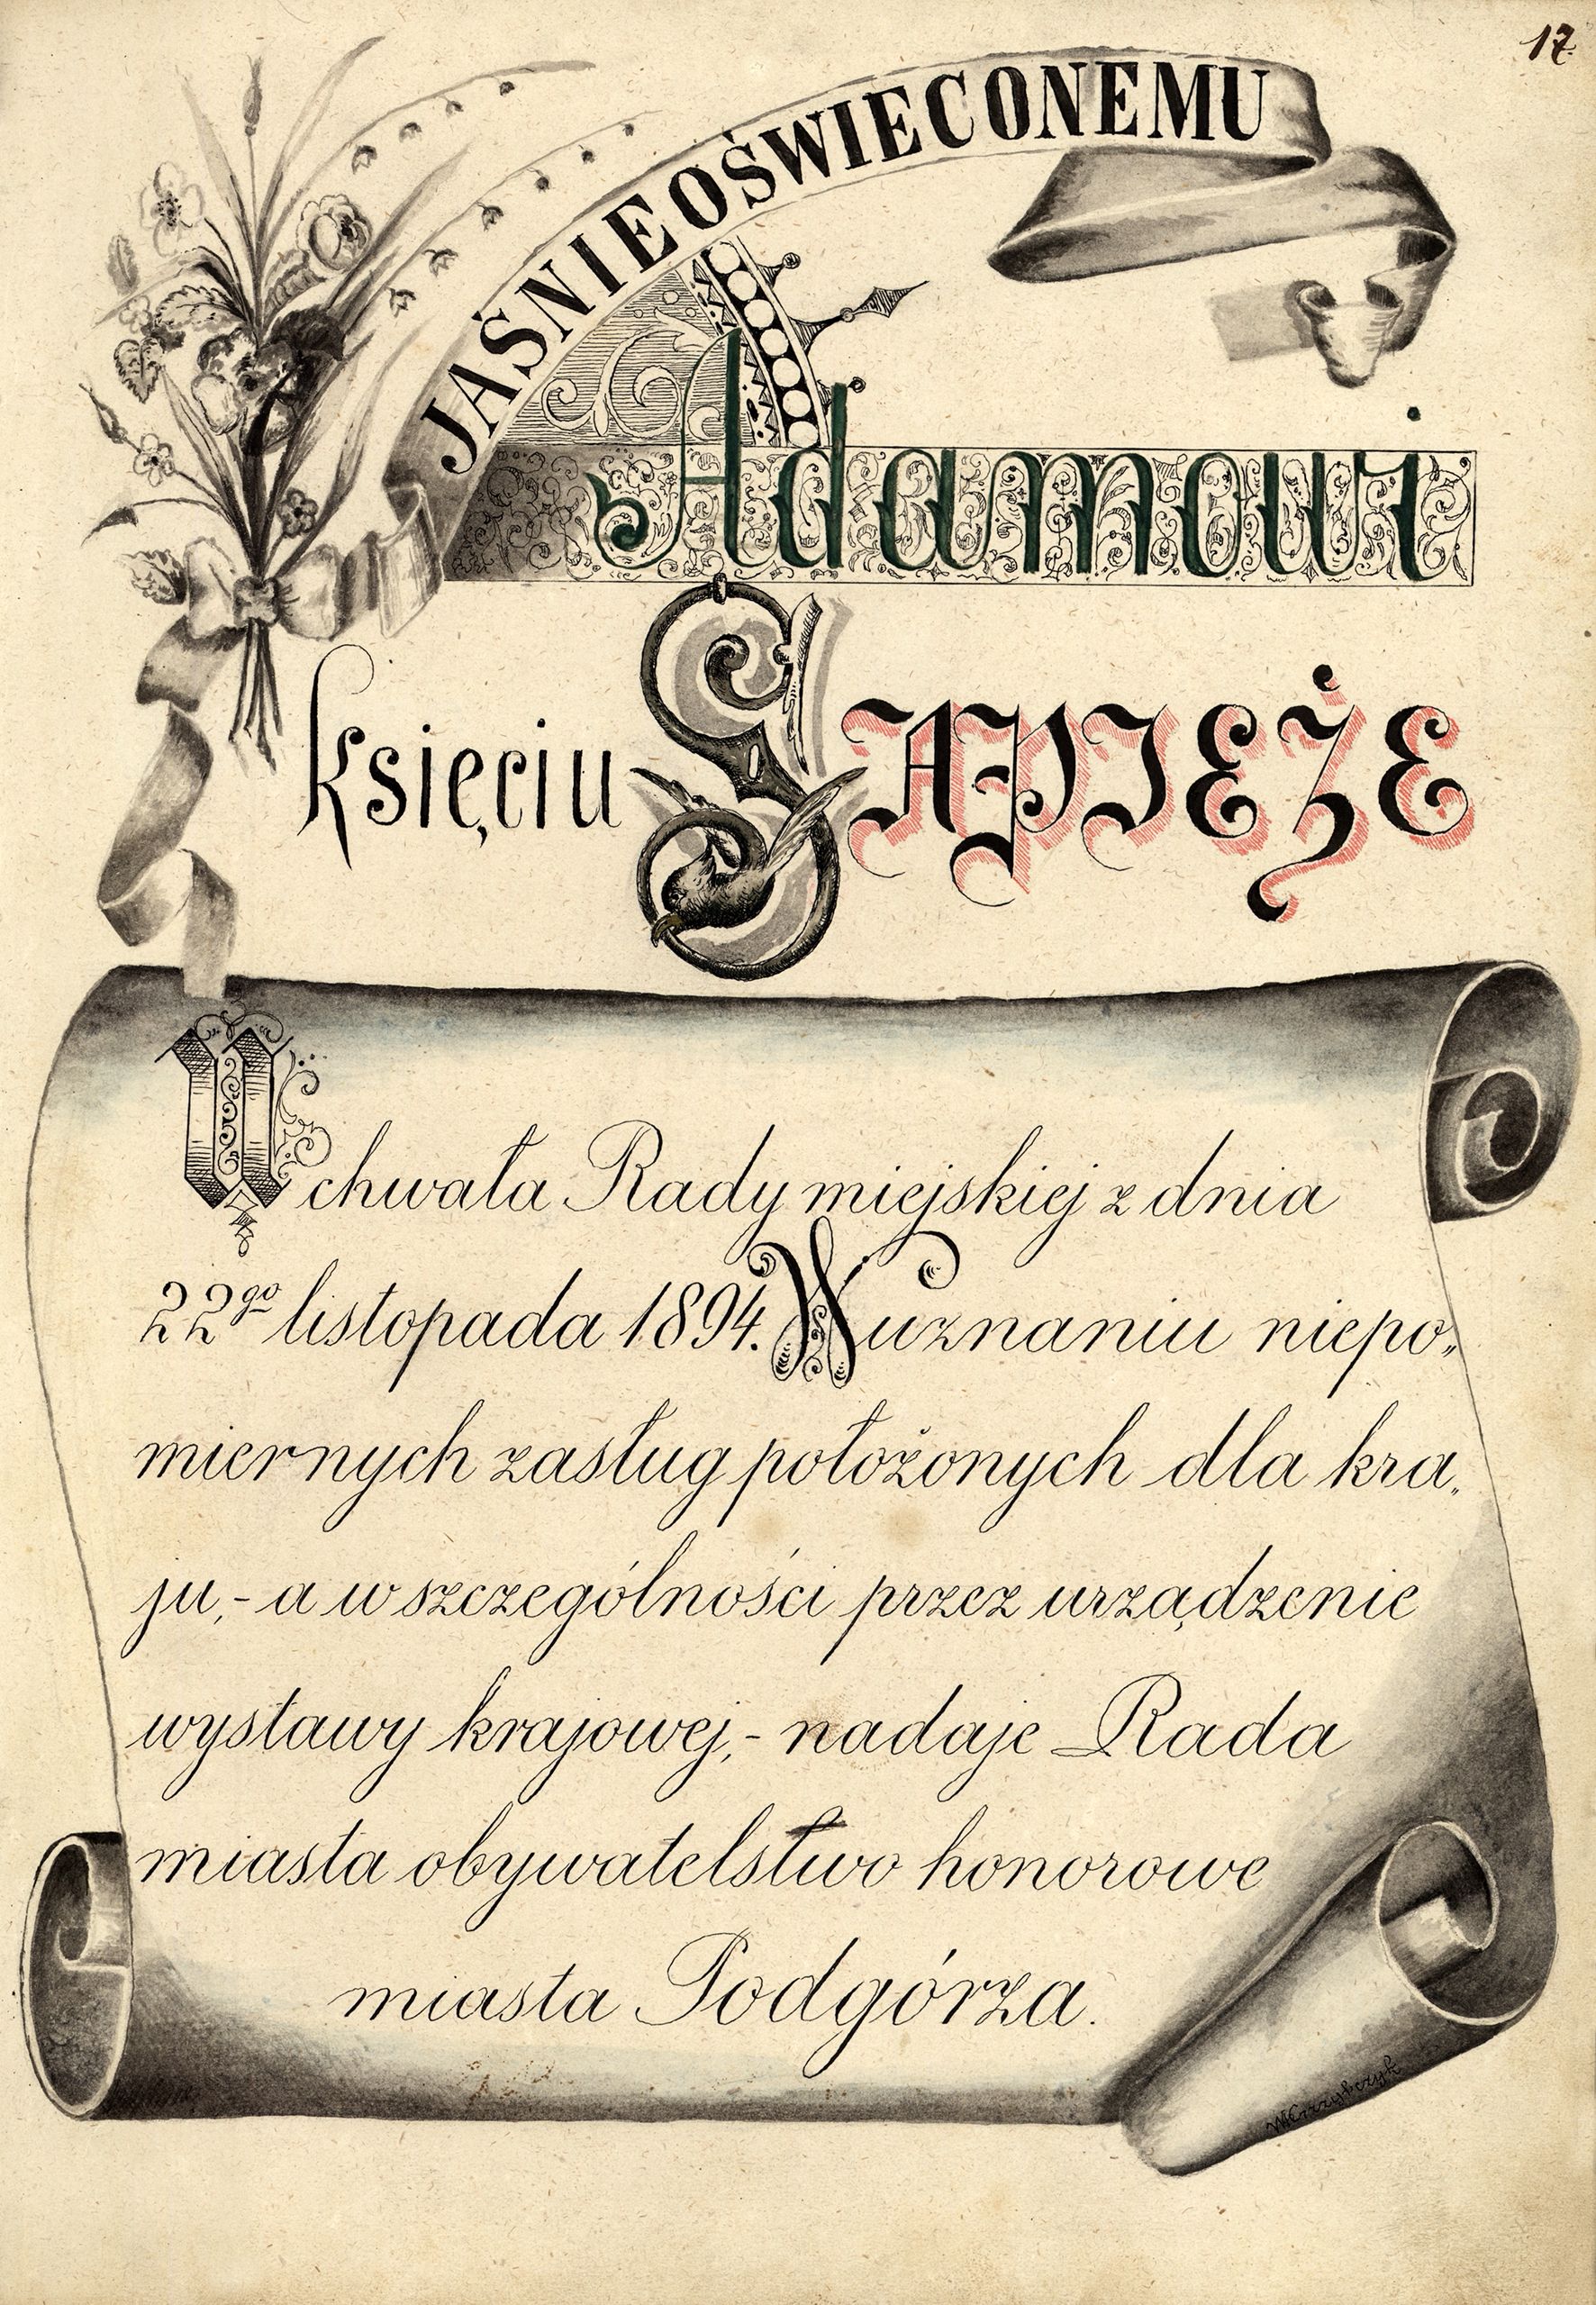 17.
JAŚNIEOŚWIECONEMU
Adamowi
księciu SAPIEŻE
Uchwała Rady miejskiej z dnia
22go listopada 1894. W uznaniu niepo„
miernych zasług położonych dla kra„
ju,- a w szczególności przez urządzenie
wystawy krajowej,- nadaje Rada
miasta obywatelstwo honorowe
miasta Podgórza.